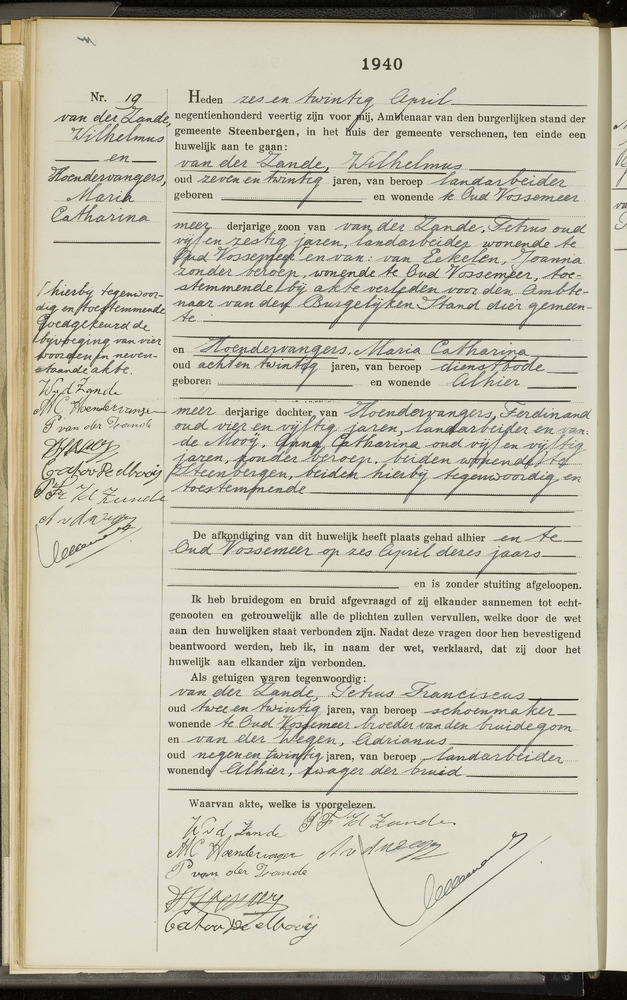 1940
Nr. 19
van der Zande,
Wilhelmus
en
Hoendervangers,
Maria
Catharina
Heden zes en twintig April
negentienhonderd veertig zijn voor mij, Ambtenaar van den burgerlijken stand der
gemeente Steenbergen, in het huis der gemeente verschenen, ten einde een
huwelijk aan te gaan:
van der Zande, Wilhelmus
oud zeven en twintig jaren, van beroep landarbeider
geboren en wonende te Oud Vossemeer
meer derjarige zoon van van der Zande, Petrus oud
vijf en zestig jaren, landarbeider wonende te
Oud Vossemeer en van: van Eekelen, Joanna
zonder beroep, wonende te Oud Vossemeer, toe-
stemmende bij akte verleden voor den Ambte-
naar van den Burgelijken Stand dier gemeen-
te
en Hoendervangers, Maria Catharina
oud acht en twintig jaren, van beroep dienstbode
geboren en wonende Alhier
meer derjarige dochter, van Hoendervangers, Ferdinand
oud vier en vijftig jaren, landarbeider en van:
de Mooij, Anna Catharina oud vijf en vijftig
jaren, zonder beroep, beiden wonende te
Steenbergen, beiden hierbij tegenwoordig en
toestemmende
hierbij tegenwoor-
dig en toestemmende
Goedgekeurd de
bijvoeging van vier
woorden in neven-
staande akte.
W v d Zande
M C Hoendervangers
P van der Zande
P F v d Zande
A v d Wegen
De afkondiging van dit huwelijk heeft plaats gehad alhier en te
Oud Vossemeer op zes April dezes jaars
en is zonder stuiting afgeloopen.
Ik heb bruidegom en bruid afgevraagd of zij elkander aannemen tot echt-
genooten en getrouwelijk alle de plichten zullen vervullen, welke door de wet
aan den huwelijken staat verbonden zijn. Nadat deze vragen door hen bevestigend
beantwoord werden, heb ik, in naam der wet, verklaard, dat zij door het
huwelijk aan elkander zijn verbonden.
Als getuigen waren tegenwoordig:
van der Zande, Petrus Franciscus
oud twee en twintig jaren, van beroep schoenmaker
wonende te Oud Vossemeer broeder van den bruidegom
en van der Wegen, Adrianus
oud negen en twintig jaren, van beroep landarbeider
wonende Alhier, zwager der bruid
Waarvan akte, welke is voorgelezen.
W v d Zande P F v d Zande
M C Hoendervangers A v d Wegen
P van der Zande